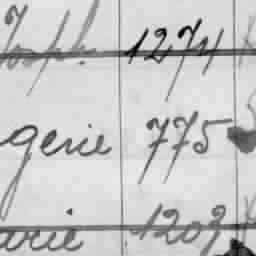 Joseph 1274
gerie 775
arie 1203